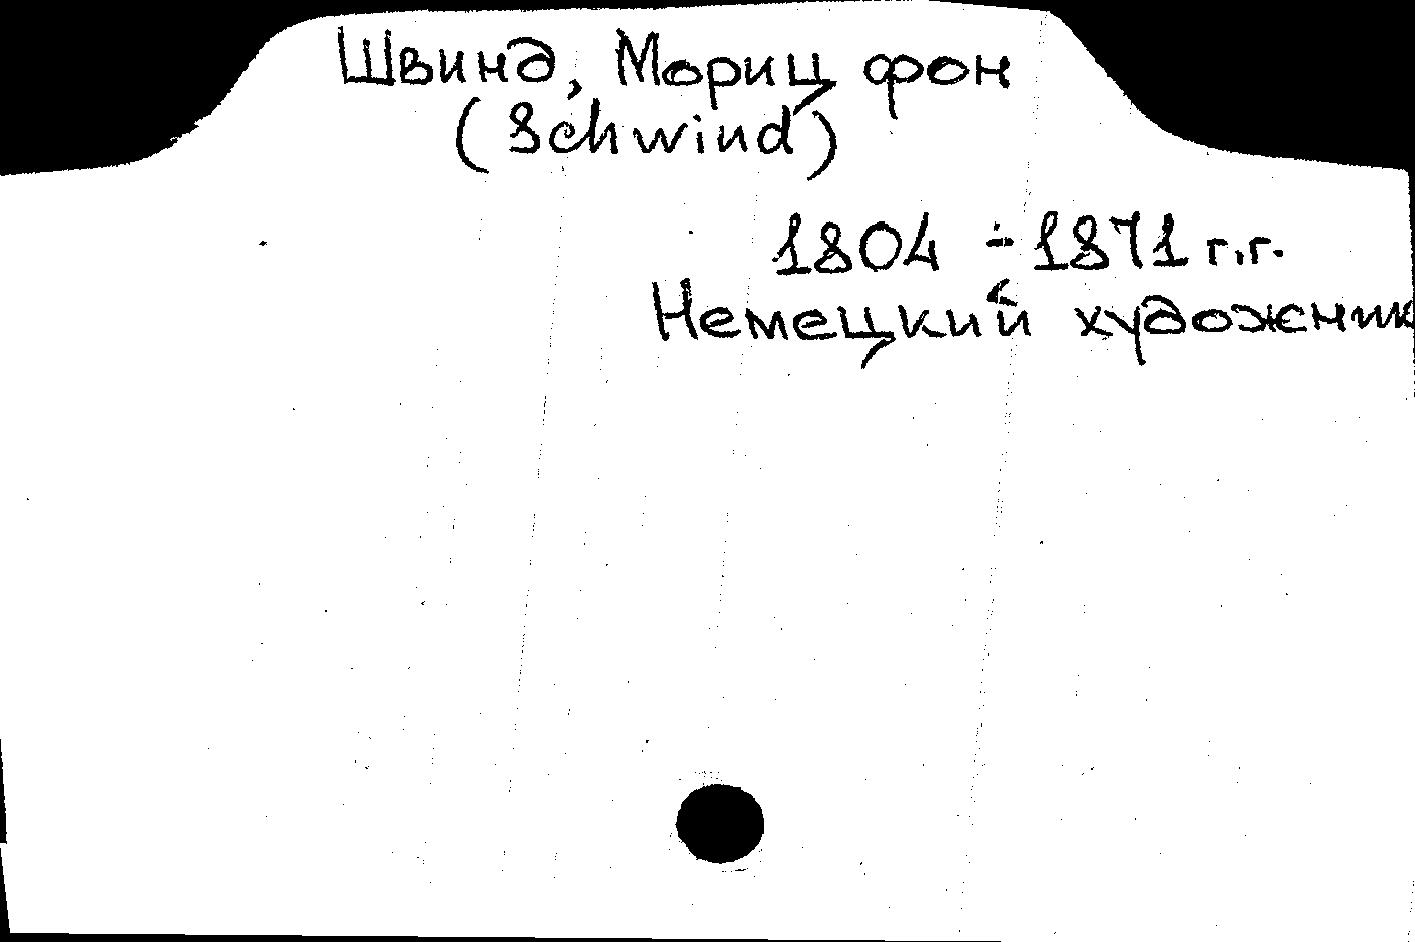 Швинд, Мориц фон
(Schwind)
1804 - 1871 г.г.
Немецкий художник